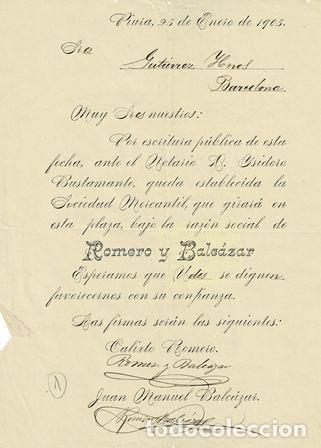 Piura, 25 de Enero de 1905.
Sres
Gutiérrez Hnos
Barcelona
Muy Sres nuestros:
Por escritura pública de esta
fecha, ante el Notario D. Isidoro
Bustamante, queda establecida la
Sociedad Mercantil, que girará en
esta plaza, bajo la razón social de
Romero y Balcázar
Esperamos que Udes se dignen
favorecernos con su confianza.
Las firmas serán las siguientes:
Calixto Romero.
Romero y Balcázar
Juan Manuel Balcázar.
Romero y Balcázar
1
todocoleccion